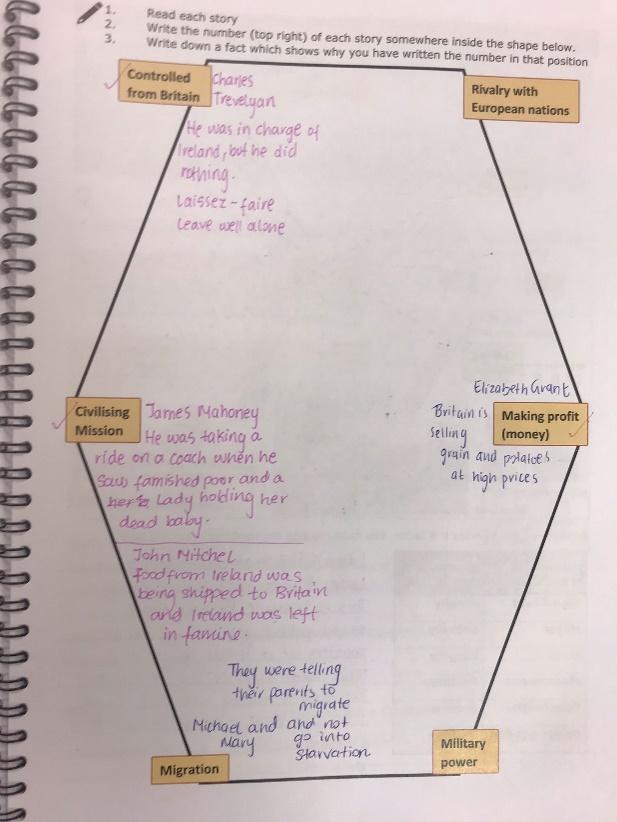 1. Read each story
2. Write the number (top right) of each story somewhere inside the shape below.
3. Write down a fact which shows why you have written the number in that position
Controlled
from Britain
Charles
Trevelyan
He was in charge of
Ireland, but he did
nothing.
Laissez-faire
Leave well alone
Rivalry with
European nations
Civilising
Mission
James Mahoney
He was taking a
ride on a coach when he
saw famished poor and a
Lady holding her
dead baby.
John Mitchel
Food from Ireland was
being shipped to Britain
and Ireland was left
in famine.
Elizabeth Grant
Britain is
selling
grain and potatoes
at high prices
Making profit
(money)
They were telling
their parents to
migrate
and not
go into
starvation
Michael and
Mary
Migration
Military
power